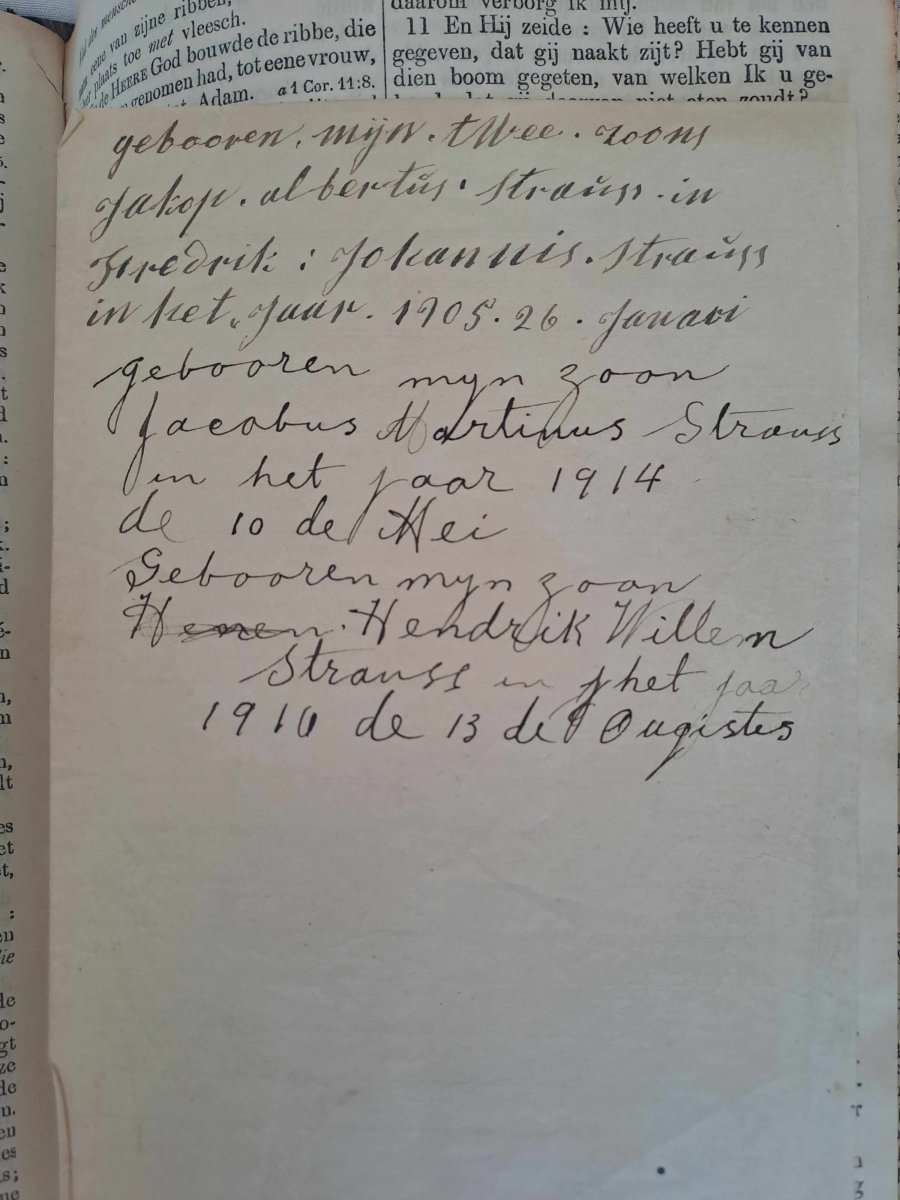 eene van zijne ribben,
plaats toe met vleesch.
de HEERE God bouwde de ribbe, die
genomen had, tot eene vrouw,
Adam. a 1 Cor. 11:8.
daarom verborg ik mij.
11 En Hij zeide : Wie heeft u te kennen
gegeven, dat gij naakt zijt? Hebt gij van
dien boom gegeten, van welken Ik u ge-
gebooren . mijn . twee . zoons
Jakop . albertus . Strauss . in
Fredrik : Johannis . Strauss
in het Jaar . 1905 . 26 . Januari
gebooren myn zoon
Jacobus Martinus Strauss
in het jaar 1914
de 10 de Mei
Gebooren myn zoon
Hendrik Willem
Strauss in het jaar
1910 de 13 de Ougistes